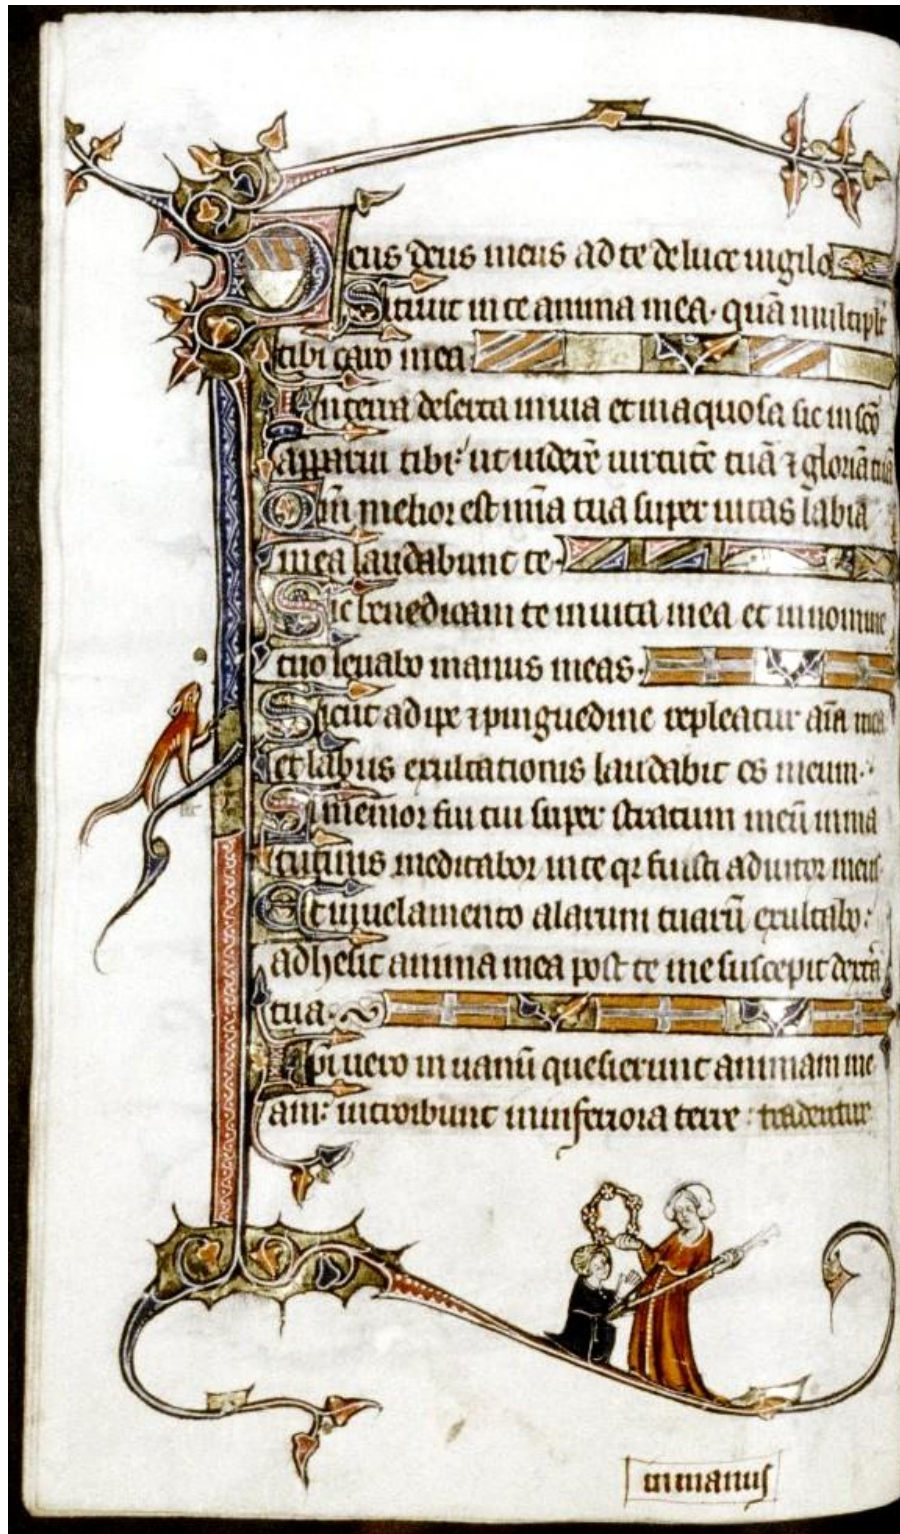 Deus deus meus ad te de luce uigilo
Sitiuit in te anima mea· quā multiplr̄
tibi caro mea
In terra deserta inuia et inaquosa sic in scō
apparui tibi: ut uiderē uirtutē tuā ⁊ gloriā tuā
Qm̄ melior est mīa tua super uitas labia
mea laudabunt te·
Sic benedicam te in uita mea et in nomine
tuo leuabo manus meas·
Sicut adipe ⁊ pinguedine repleatur aīa mea
et labiis exultationis laudabit os meum·
Si memor fui tui super stratum meū in ma
tutinis meditabor in te qr fuisti adiutor meus·
Et in uelamento alarum tuarū exultabo:
adhesit anima mea post te me suscepit dextrā
tua·
Ipi uero in uanū quesierunt animam me
am: introibunt in inferiora terre: tradentur
in manus